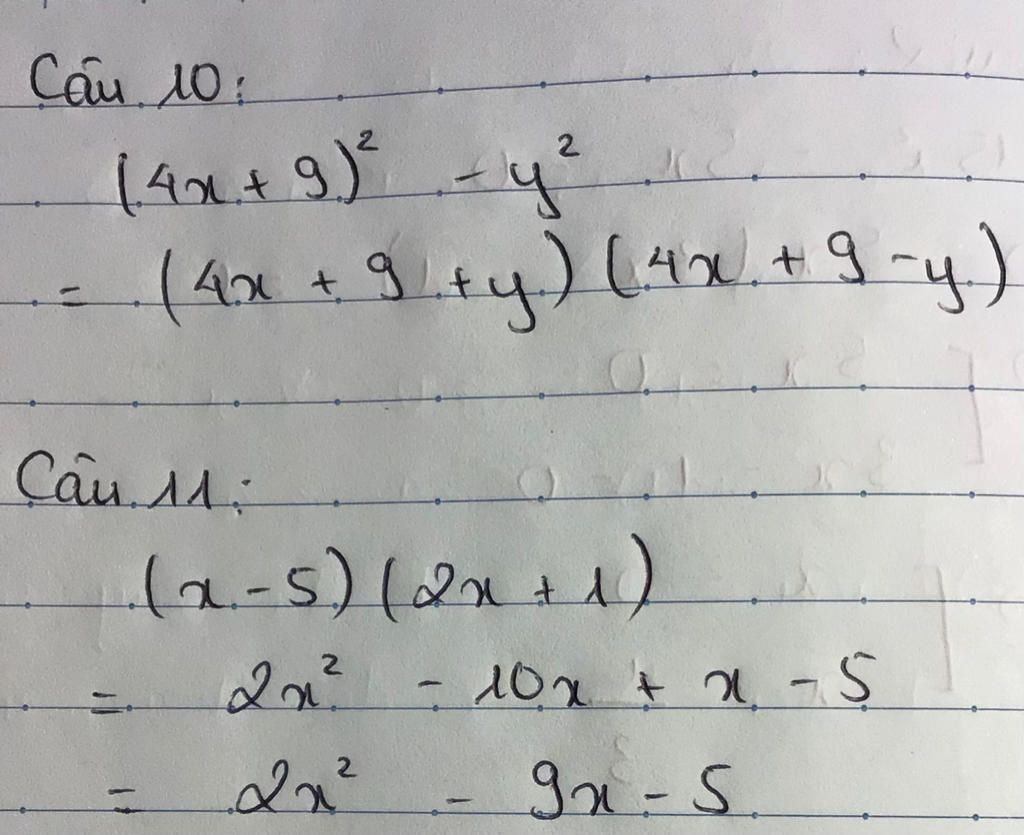 Câu 10:
(4x + 9)² - y²
= (4x + 9 + y) (4x + 9 - y)
Câu 11:
(x - 5) (2x + 1)
= 2x² - 10x + x - 5
= 2x² - 9x - 5